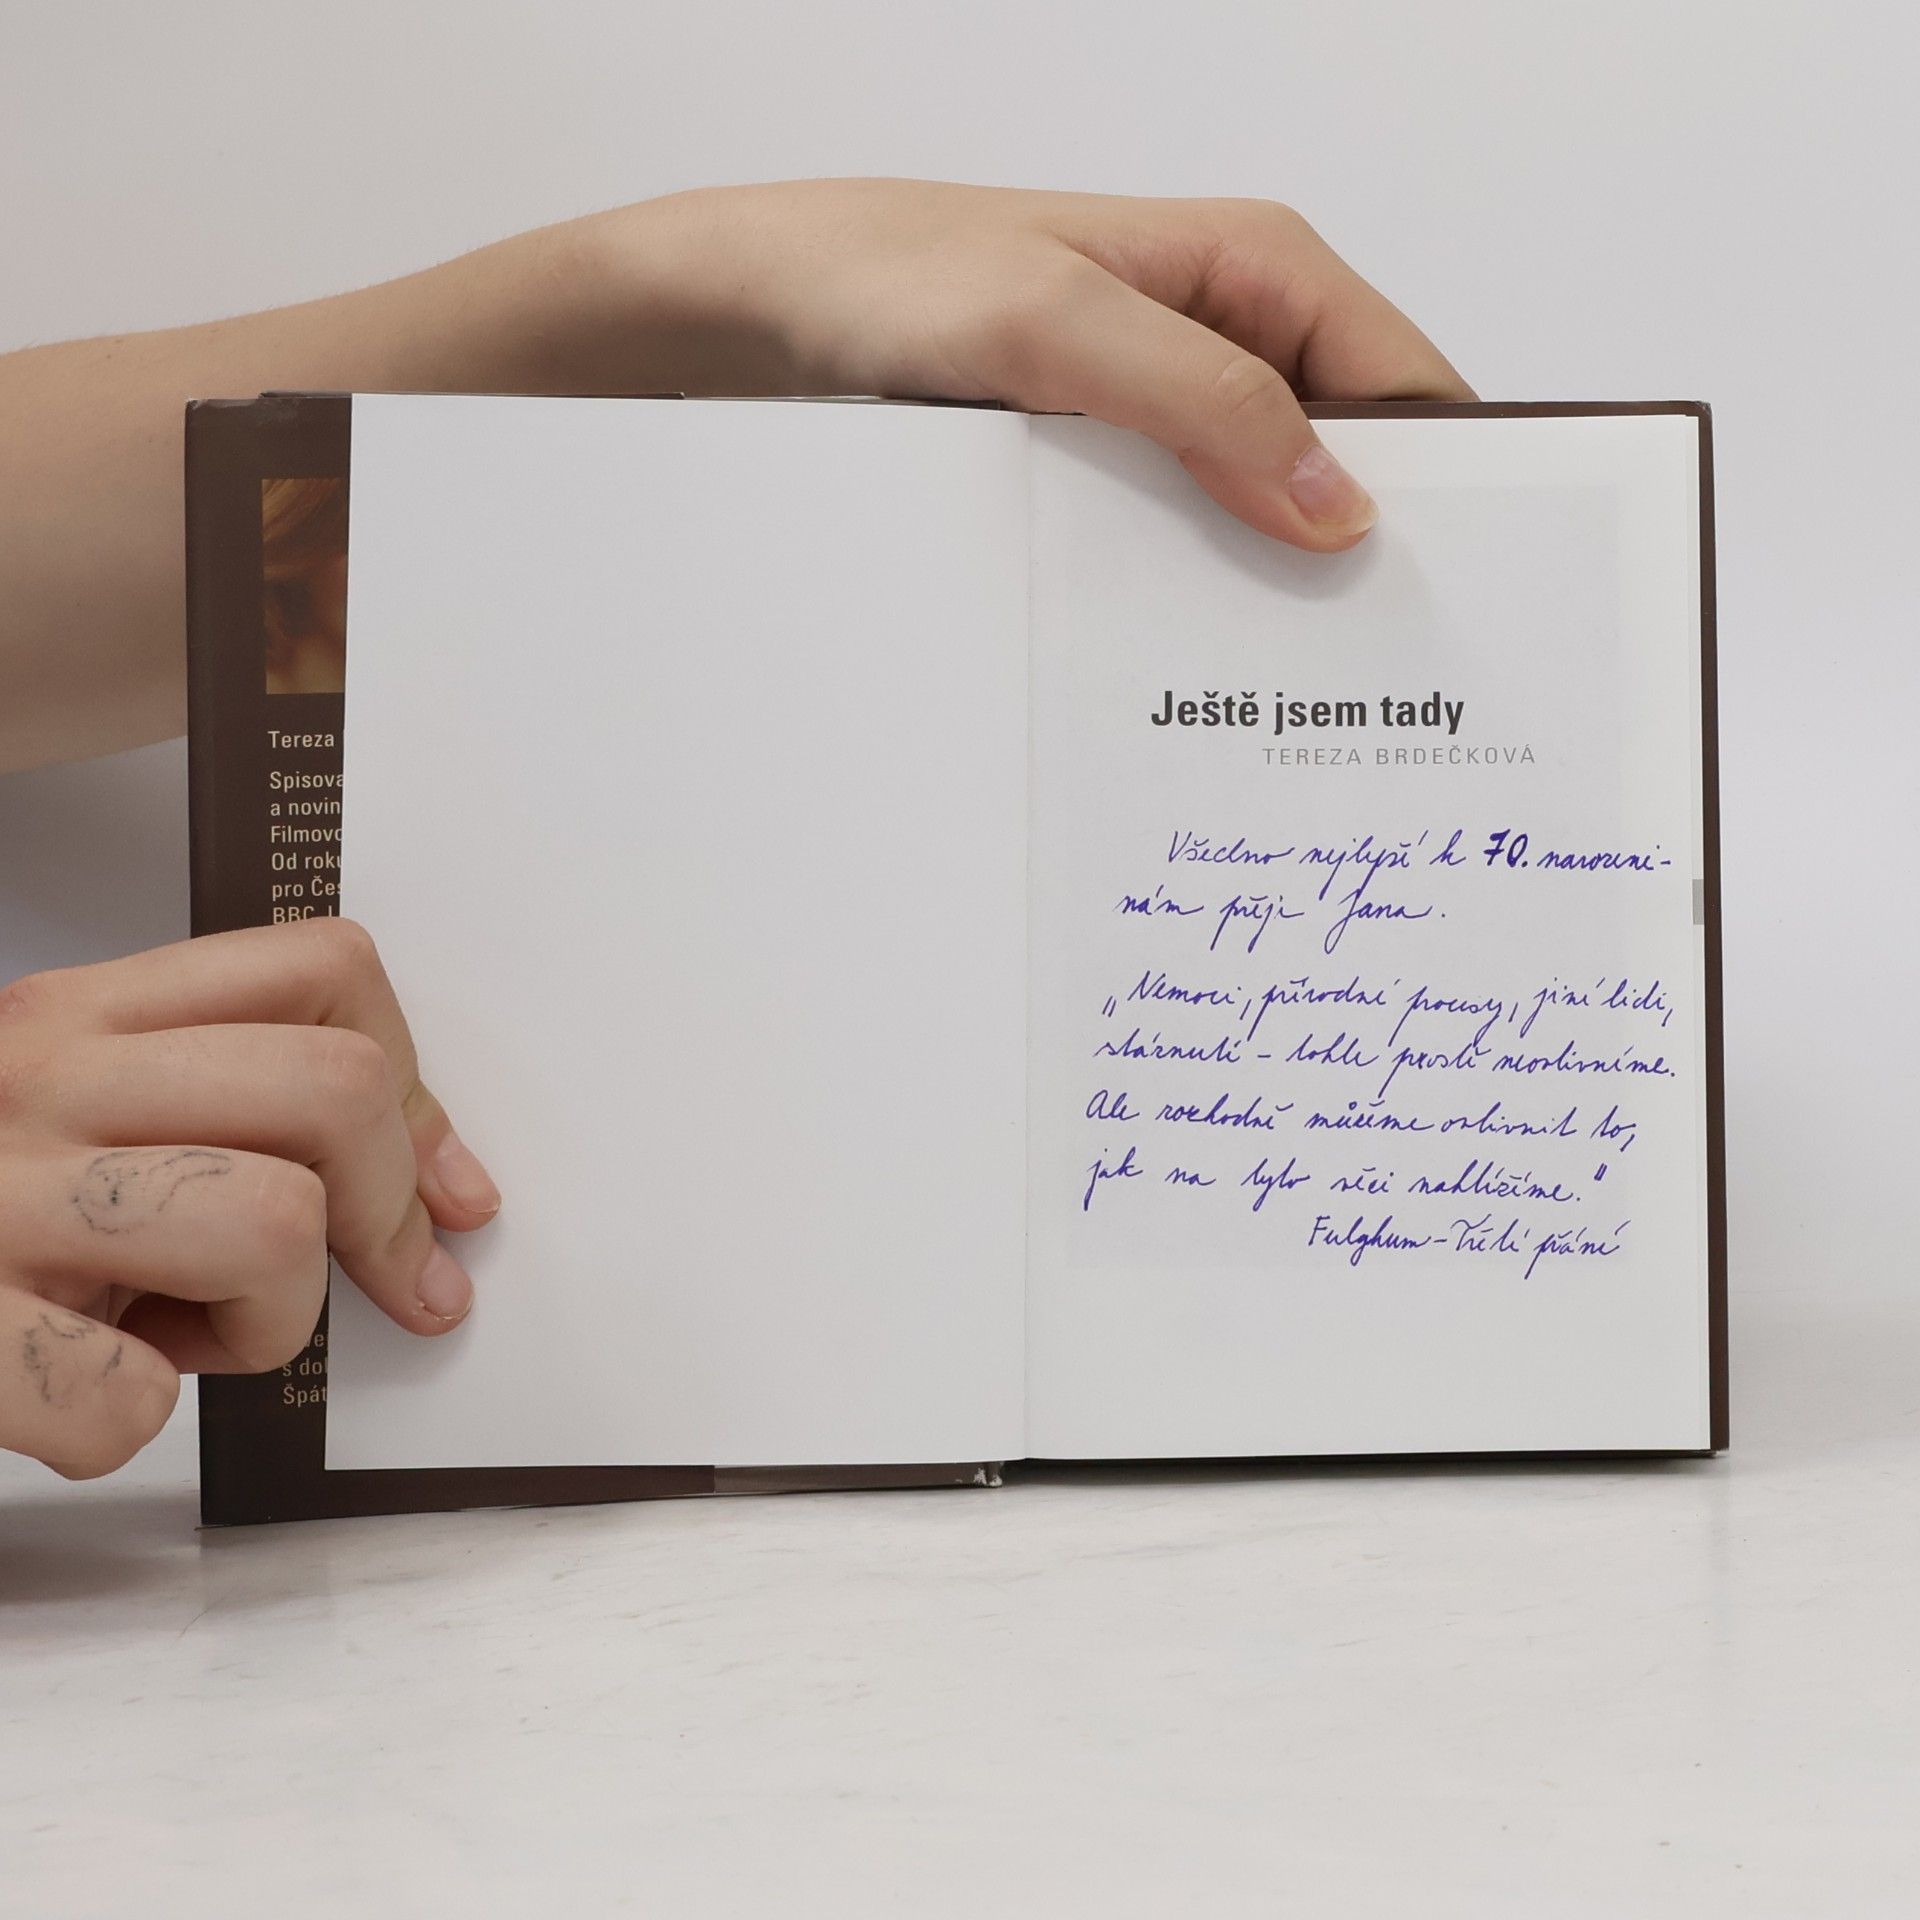 Tereza
Spisova
a novin
Filmovo
Od roku
pro Čes
BBC
s dol
Špát
Ještě jsem tady
TEREZA BRDEČKOVÁ
Všechno nejlepší k 70. narozeni-
nám přeje Jana.
„Nemoci, přírodní procesy, jiné lidi,
stárnutí – tohle prostě neovlivníme.
Ale rozhodně můžeme ovlivnit to,
jak na tyto věci nahlížíme."
Fulghum – Třetí přání